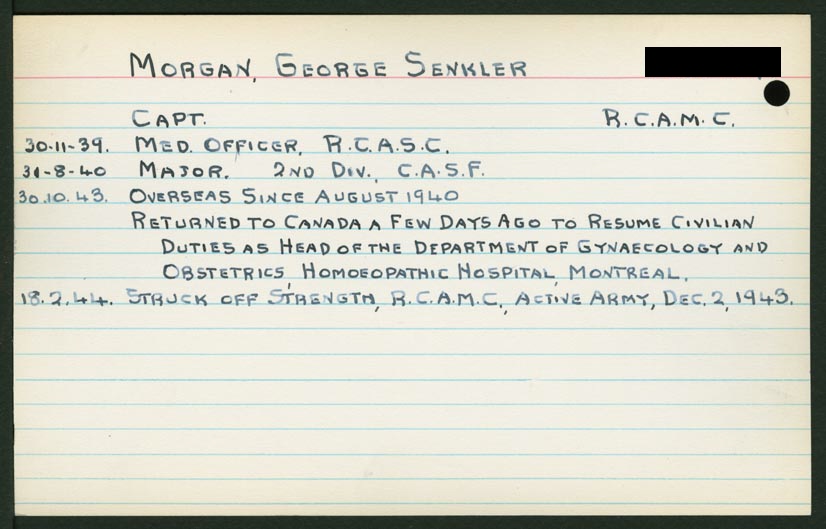 MORGAN, GEORGE SENKLER
CAPT. R.C.A.M.C.
30-11-39. MED. OFFICER, R.C.A.S.C.
31-8-40 MAJOR. 2ND DIV., C.A.S.F.
30.10.43. OVERSEAS SINCE AUGUST 1940
RETURNED TO CANADA A FEW DAYS AGO TO RESUME CIVILIAN
DUTIES AS HEAD OF THE DEPARTMENT OF GYNAECOLOGY AND
OBSTETRICS, HOMOEOPATHIC HOSPITAL, MONTREAL.
18.2.44. STRUCK OFF STRENGTH, R.C.A.M.C., ACTIVE ARMY, DEC. 2, 1943.